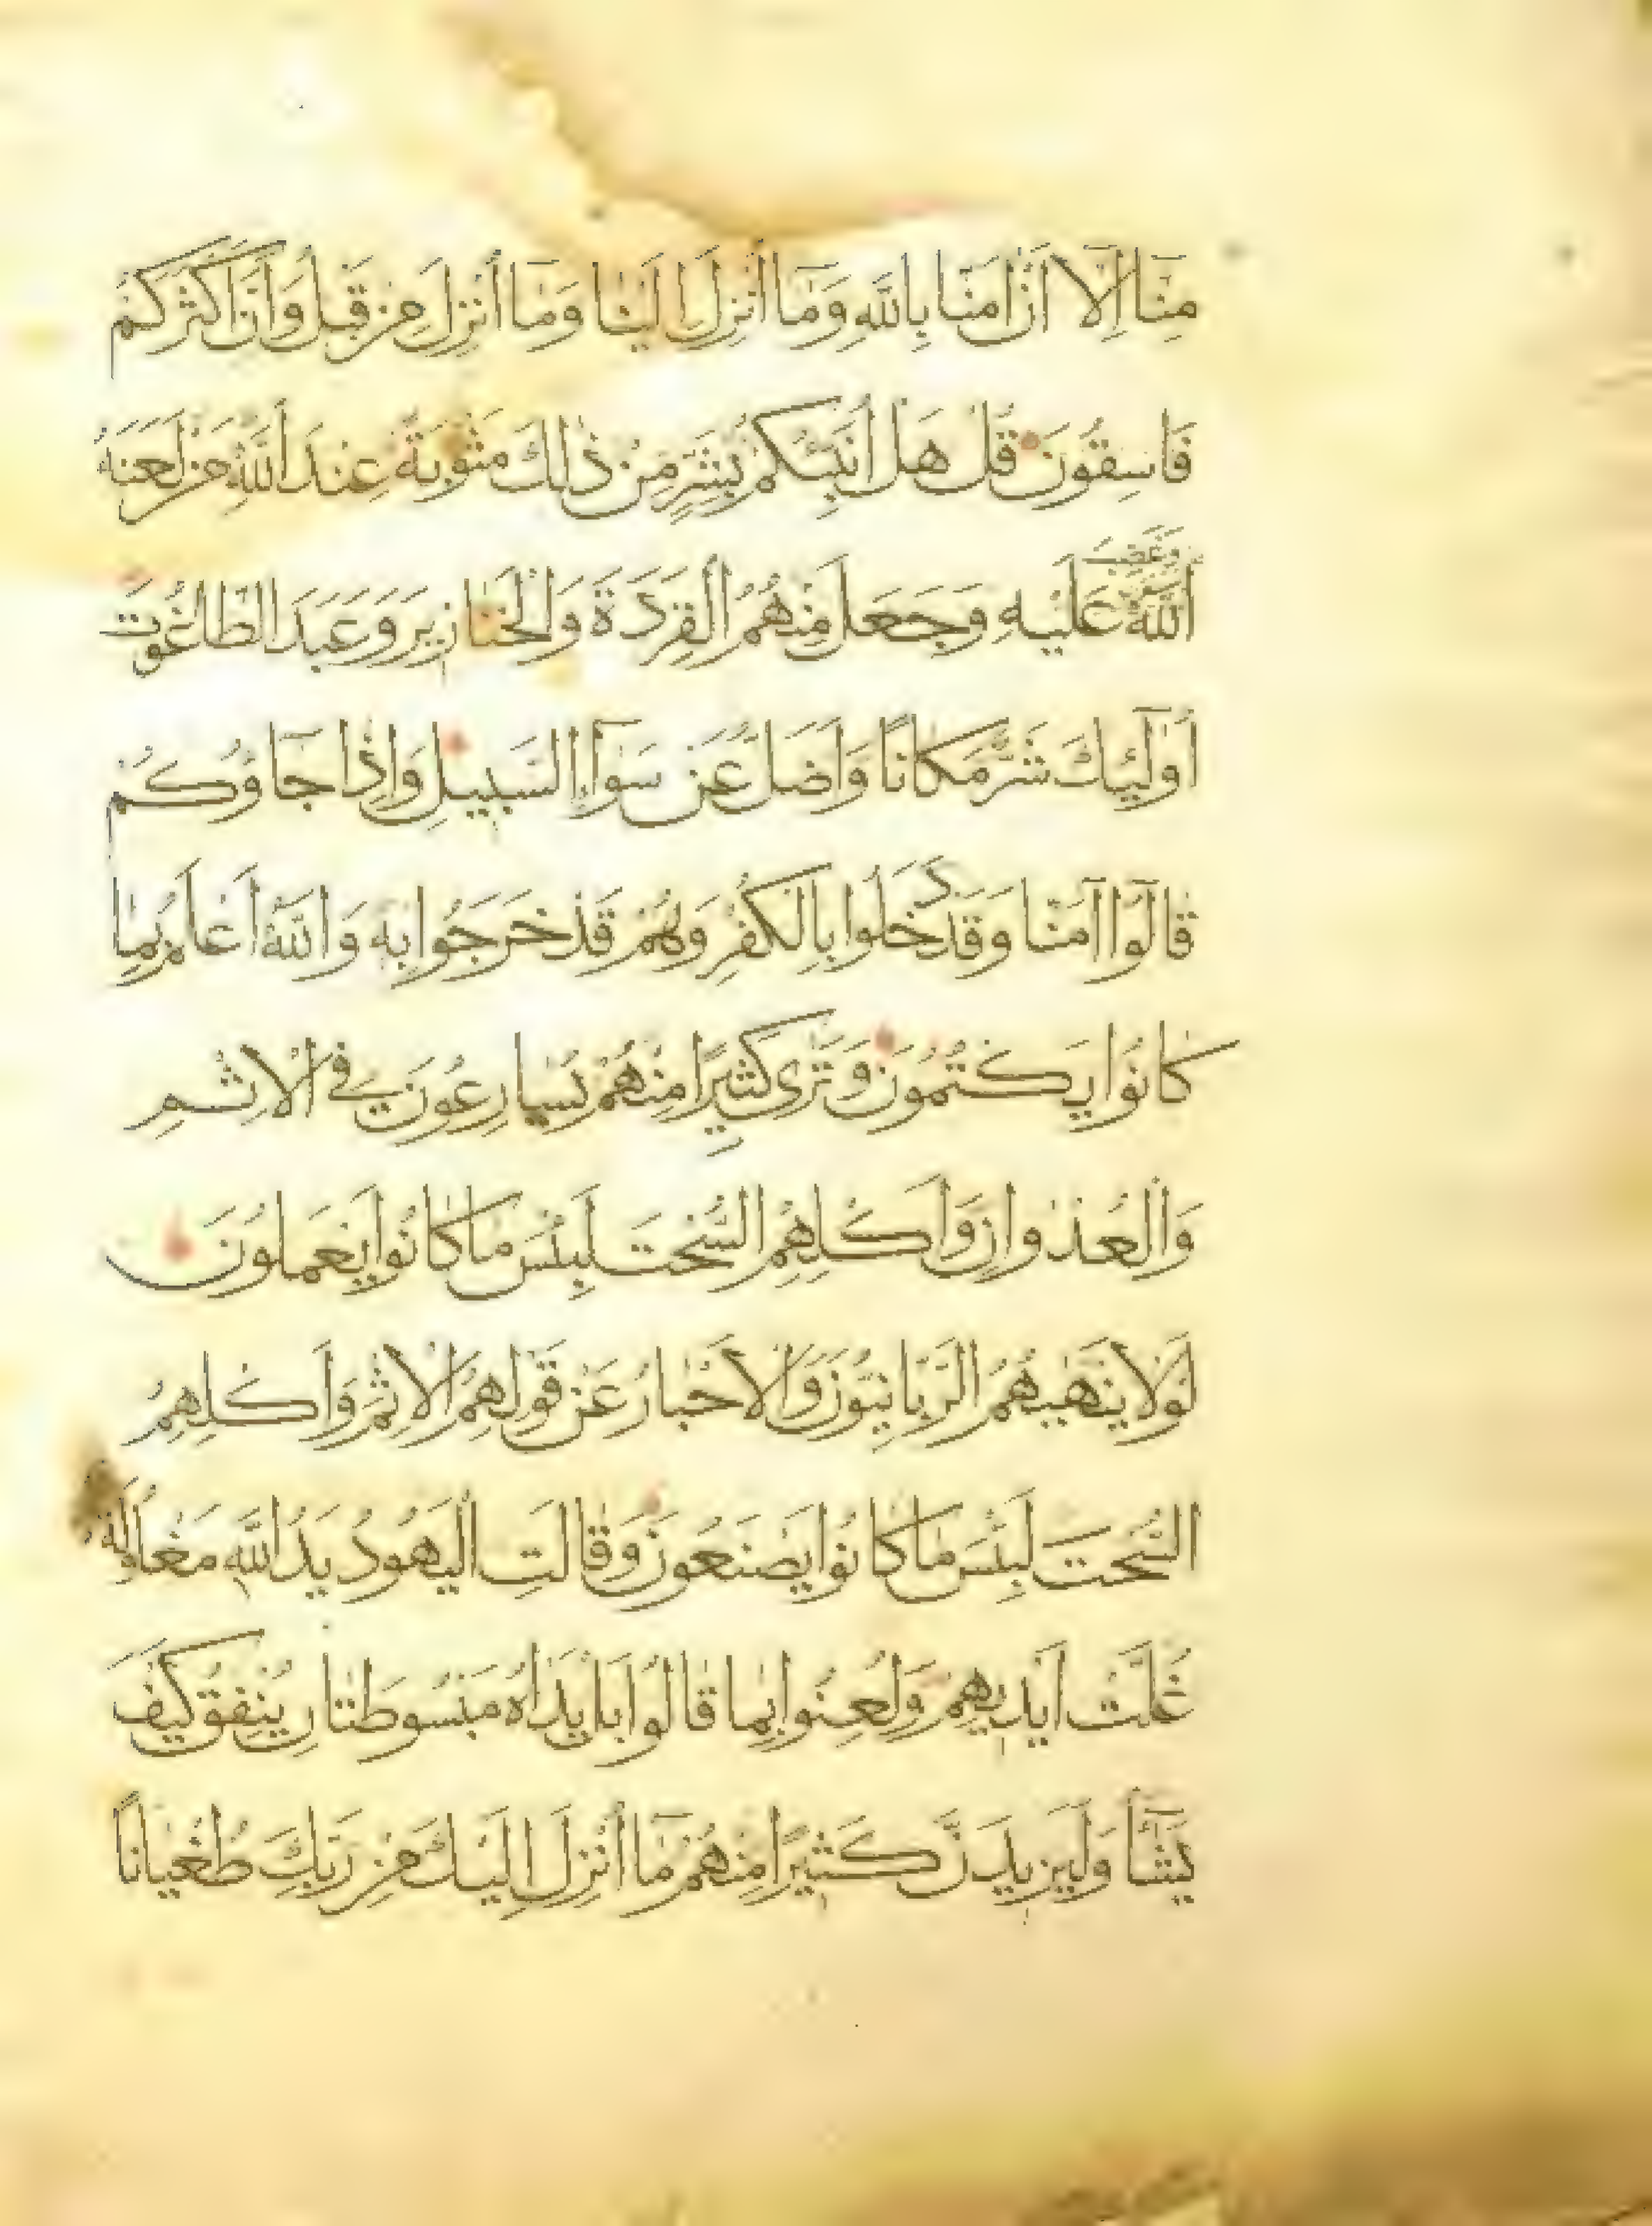 مِنَّا إِلَّا أَنْ آمَنَّا بِاللَّهِ وَمَا أُنْزِلَ إِلَيْنَا وَمَا أُنْزِلَ مِنْ قَبْلُ وَأَنَّ أَكْثَرَكُمْ
فَاسِقُونَ قُلْ هَلْ أُنَبِّئُكُمْ بِشَرٍّ مِنْ ذَٰلِكَ مَثُوبَةً عِنْدَ اللَّهِ مَنْ لَعَنَهُ
وَغَضِبَ
اللَّهُ عَلَيْهِ وَجَعَلَ مِنْهُمُ الْقِرَدَةَ وَالْخَنَازِيرَ وَعَبَدَ الطَّاغُوتَ
أُولَٰئِكَ شَرٌّ مَكَانًا وَأَضَلُّ عَنْ سَوَاءِ السَّبِيلِ وَإِذَا جَاؤُكُمْ
قَالُوا آمَنَّا وَقَدْ دَخَلُوا بِالْكُفْرِ وَهُمْ قَدْ خَرَجُوا بِهِ وَاللَّهُ أَعْلَمُ بِمَا
كَانُوا يَكْتُمُونَ وَتَرَىٰ كَثِيرًا مِنْهُمْ يُسَارِعُونَ فِي الْإِثْمِ
وَالْعُدْوَانِ وَأَكْلِهِمُ السُّحْتَ لَبِئْسَ مَا كَانُوا يَعْمَلُونَ
لَوْلَا يَنْهَىٰهُمُ الرَّبَّانِيُّونَ وَالْأَحْبَارُ عَنْ قَوْلِهِمُ الْإِثْمَ وَأَكْلِهِمُ
السُّحْتَ لَبِئْسَ مَا كَانُوا يَصْنَعُونَ وَقَالَتِ الْيَهُودُ يَدُ اللَّهِ مَغْلُولَةٌ
غُلَّتْ أَيْدِيهِمْ وَلُعِنُوا بِمَا قَالُوا بَلْ يَدَاهُ مَبْسُوطَتَانِ يُنْفِقُ كَيْفَ
يَشَاءُ وَلَيَزِيدَنَّ كَثِيرًا مِنْهُمْ مَا أُنْزِلَ إِلَيْكَ مِنْ رَبِّكَ طُغْيَانًا